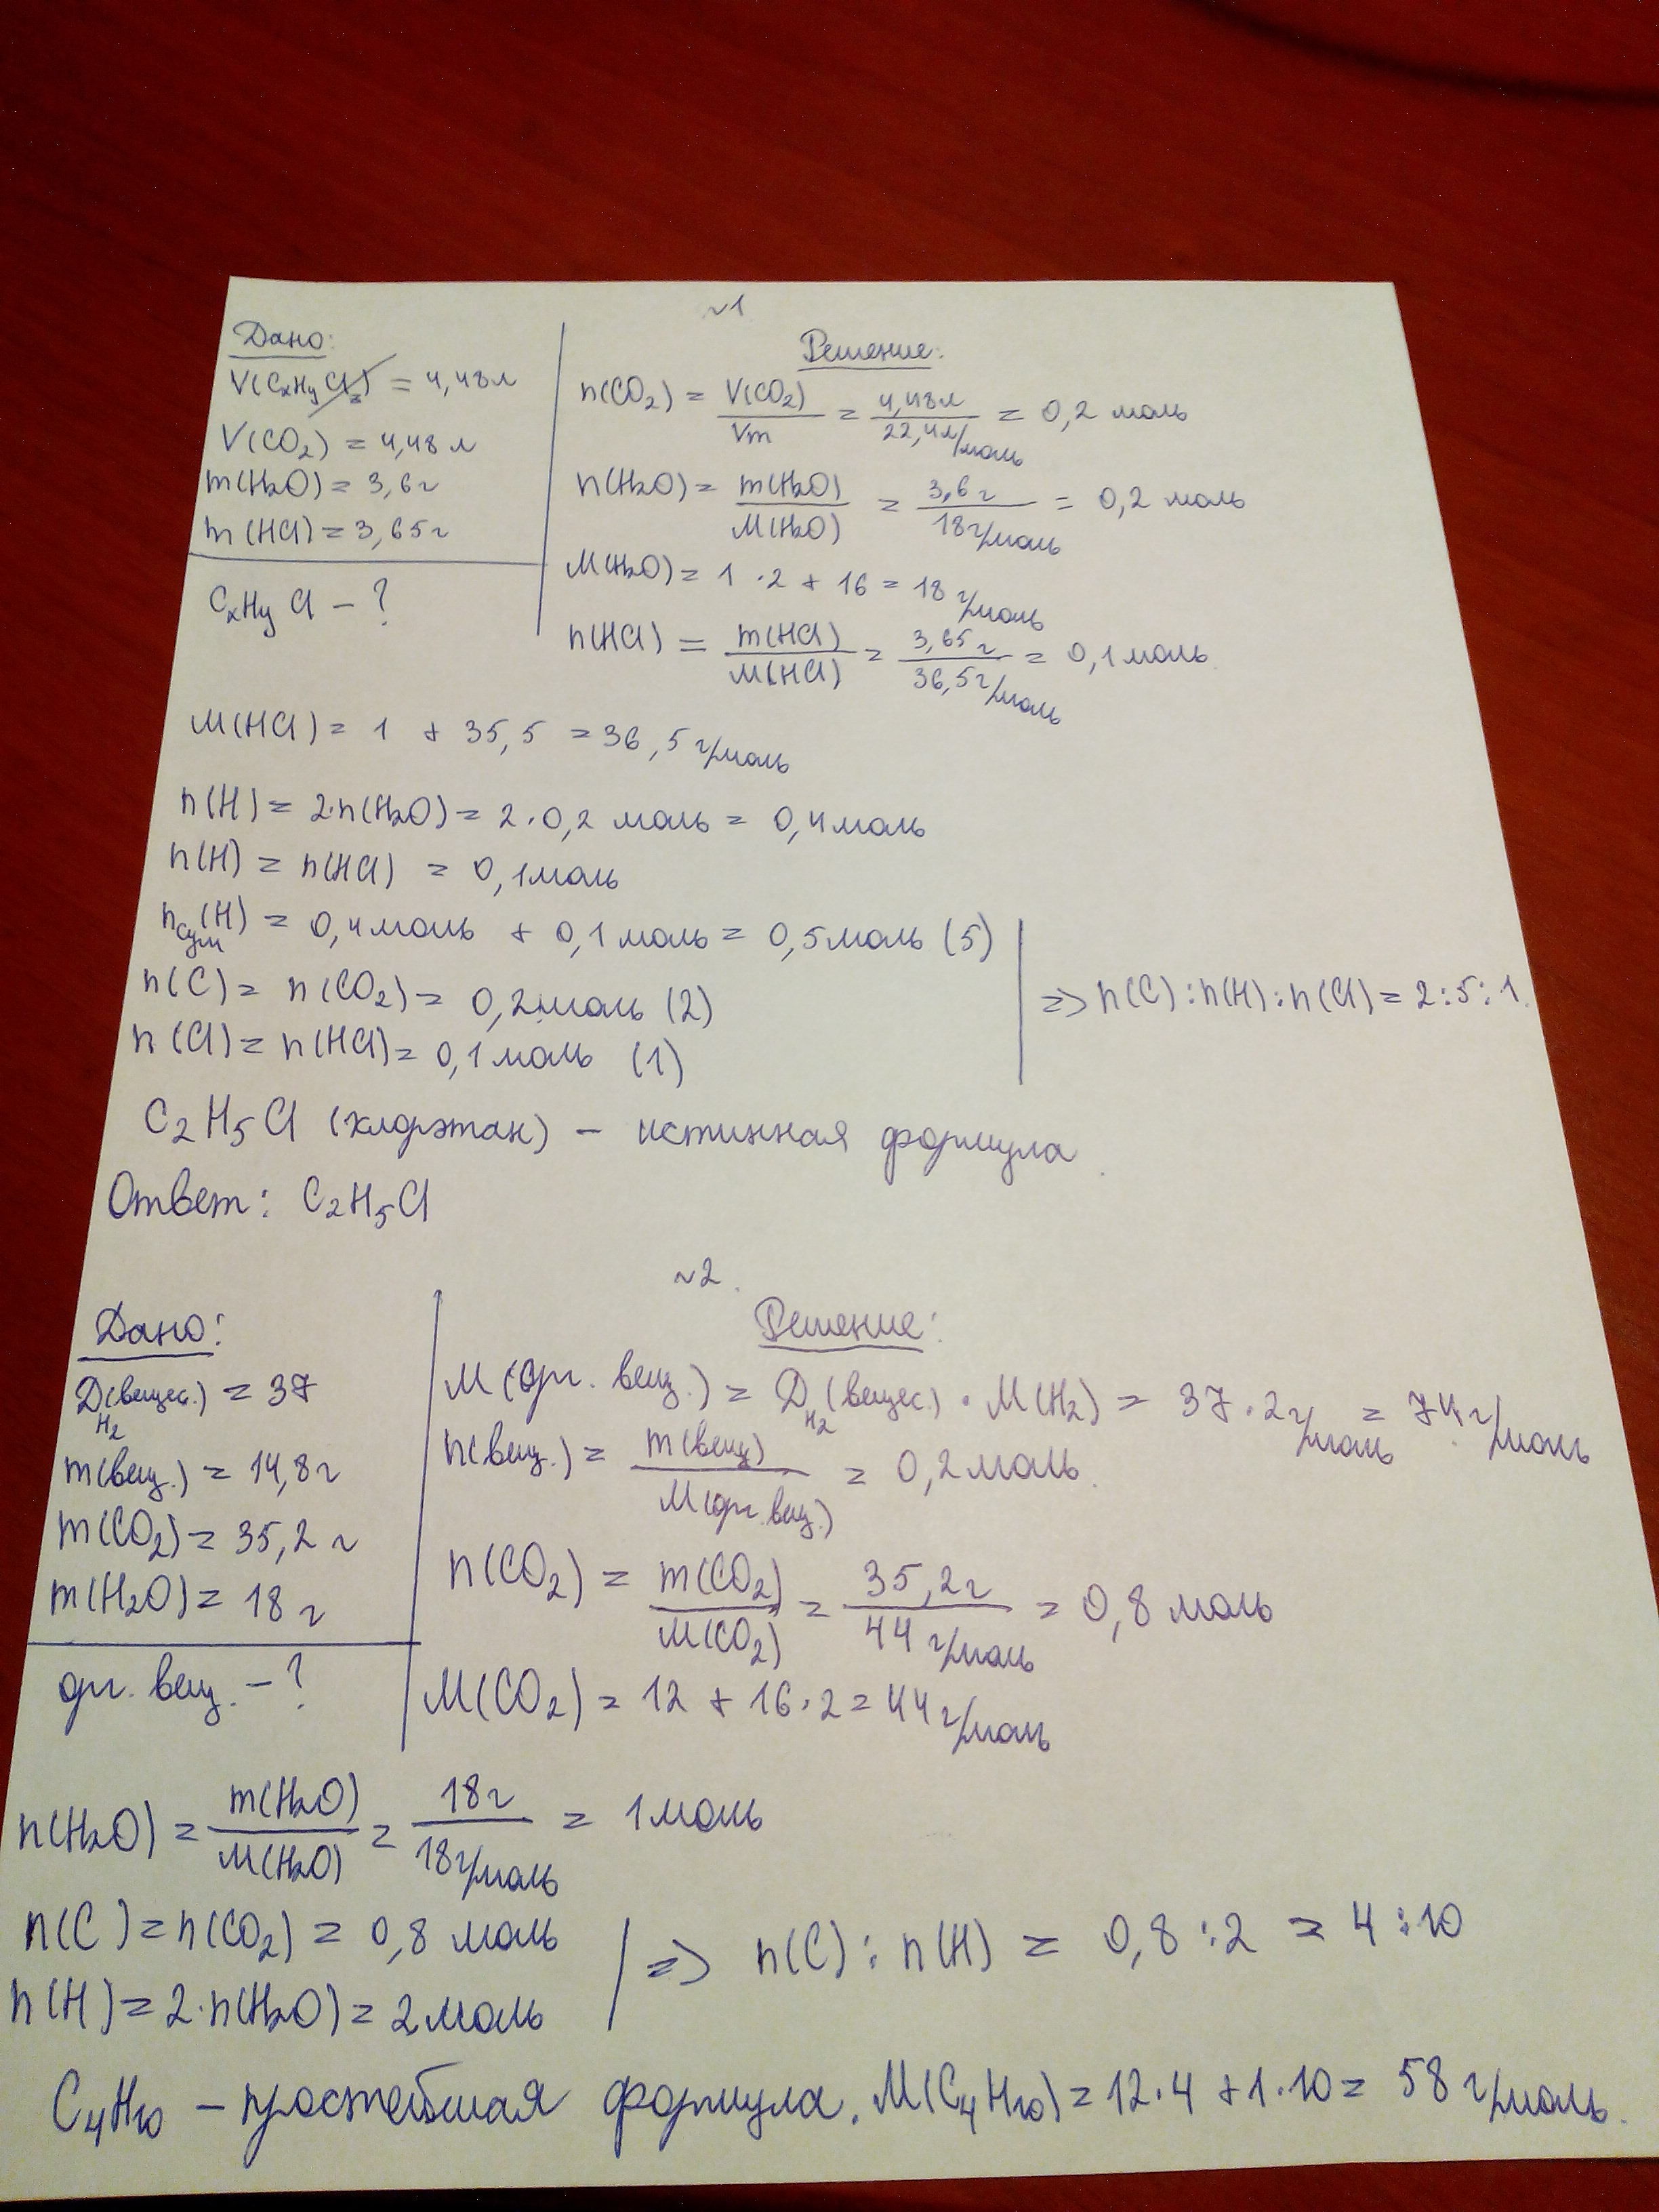 №1
Дано:
V(CxHyClz) = 4,48л
V(CO2) = 4,48 л
m(H2O) = 3,6г
m(HCl) = 3,65г
CxHyCl - ?
Решение:
n(CO2) = V(CO2)/Vm = 4,48л/22,4л/моль = 0,2 моль
n(H2O) = m(H2O)/M(H2O) = 3,6г/18г/моль = 0,2 моль
M(H2O) = 1 · 2 + 16 = 18 г/моль
n(HCl) = m(HCl)/M(HCl) = 3,65г/36,5г/моль = 0,1 моль
M(HCl) = 1 + 35,5 = 36,5 г/моль
n(H) = 2·n(H2O) = 2·0,2 моль = 0,4моль
n(H) = n(HCl) = 0,1моль
nсум(H) = 0,4моль + 0,1моль = 0,5моль (5)
n(C) = n(CO2) = 0,2моль (2)
n(Cl) = n(HCl) = 0,1моль (1)
=> n(C):n(H):n(Cl) = 2:5:1.
C2H5Cl (хлорэтан) - истинная формула.
Ответ: C2H5Cl
№2.
Дано:
DH2(вещес.) = 37
m(вещ.) = 14,8г
m(CO2) = 35,2 г
m(H2O) = 18 г
орг. вещ. - ?
Решение:
M(орг. вещ.) = DH2(вещес.) · M(H2) = 37·2г/моль = 74г/моль
n(вещ.) = m(вещ)/M(орг.вещ.) = 0,2моль.
n(CO2) = m(CO2)/M(CO2) = 35,2г/44 г/моль = 0,8 моль
M(CO2) = 12 + 16·2 = 44г/моль
n(H2O) = m(H2O)/M(H2O) = 18г/18г/моль = 1моль
n(C) = n(CO2) = 0,8 моль
n(H) = 2·n(H2O) = 2моль
=> n(C) : n(H) = 0,8 : 2 = 4:10
C4H10 - простейшая формула. M(C4H10) = 12·4 + 1·10 = 58 г/моль.